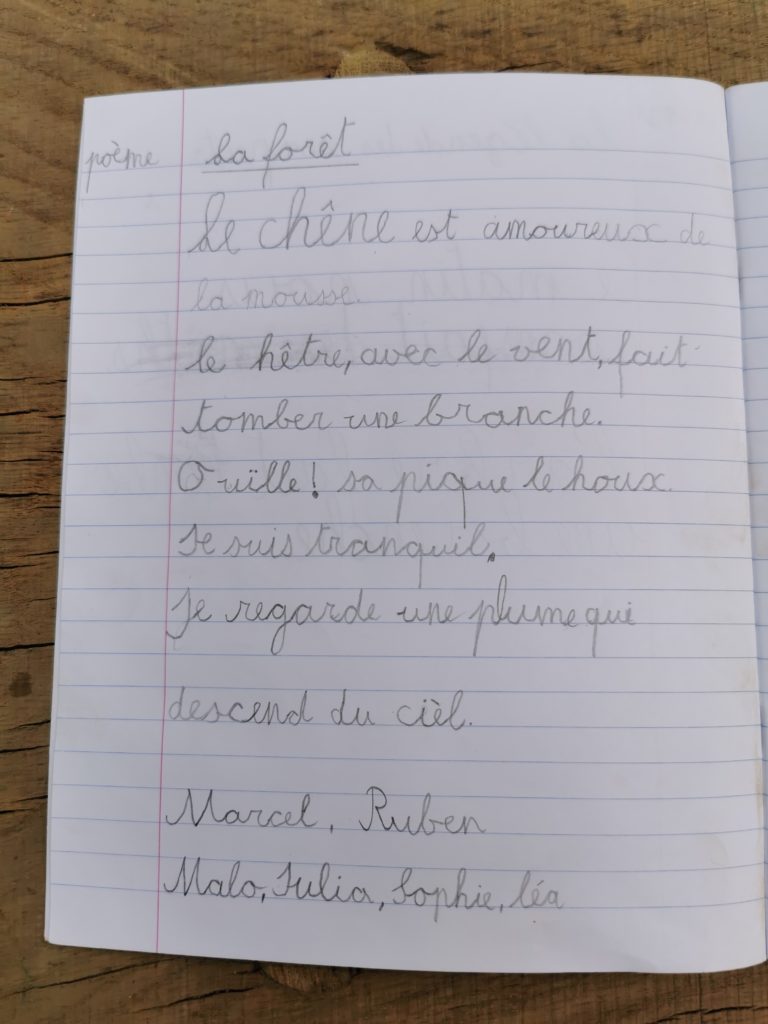 poème La forêt
Le chêne est amoureux de
la mousse.
le hêtre, avec le vent, fait
tomber une branche.
Ouïlle! sa pique le houx.
Je suis tranquil.
Je regarde une plume qui
descend du cièl.
Marcel, Ruben
Malo, Julia, Sophie, léa